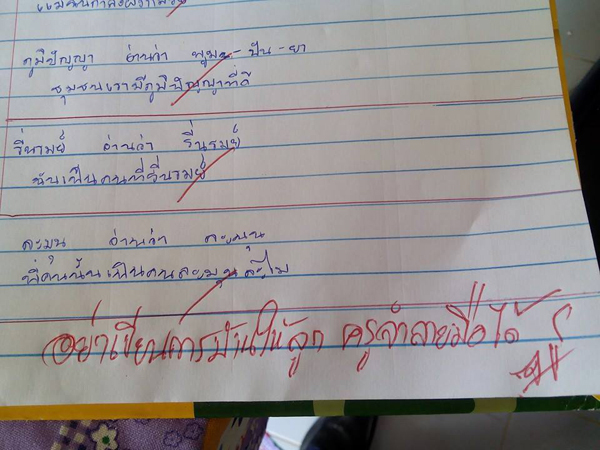 ภูมิปัญญา อ่านว่า พูม-ปัน-ยา
ชุมชนเรามีภูมิปัญญาที่ดี
รื่นรมย์ อ่านว่า รื่นรมย์
ฉันเป็นคนที่รื่นรมย์
ละมุน อ่านว่า ละมุน
พี่คนนั้นเป็นคนละมุนละไม
อย่าเขียนการบ้านให้ลูก ครูจำลายมือได้